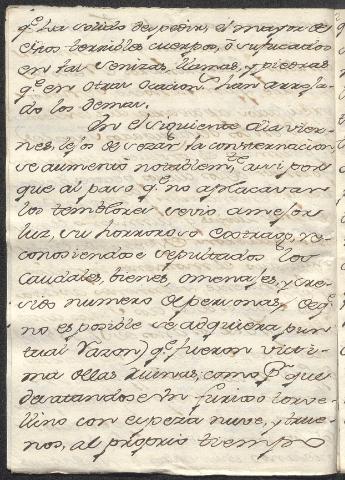 qᵉ ha solido despedir, el mayor de
estos terribles cuerpos, ô sufocados
en las cenizas, llamas, y piedras
qᵉ en otras ocasionˢ han arroja-
do los demas.
En el siguiente dia vier-
nes, lejos de cezar la consternacion
se aumentó notablemᵗᵉ, assi por
que al paso qᵉ no aplacavan
los temblores se vio, a mejor
luz, su horroroso estrago, re-
conosiendose sepultados los
Caudales, bienes, omenajes, y cre-
sido numero de personas, de qᵉ
no es posible se adquiera pun
tual razon) qᵉ fueron victi-
ma de las ruinas; como Pʳ que
desatandose un furioso torve-
llino con espeza nuve, y true-
nos, al proprio tiempo